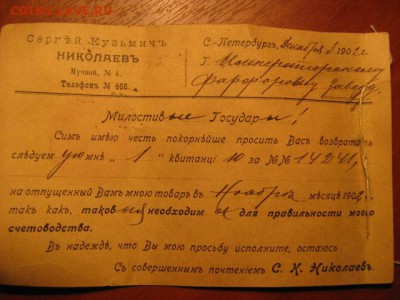 СОИНССС.РУ
Сергѣй Кузьмичъ
НИКОЛАЕВЪ
Мучной, № 4.
Телефонъ № 466.
С.-Петербургъ, Декабря 1902 г.
Г. Императорскому
Фарфоровому заводу
Милостивые Государи!
Симъ имѣю честь покорнѣйше просить Васъ возвратить
слѣдуемую мнѣ „ 1 " квитанцію за №№ 14241,
на отпущенный Вамъ мною товаръ въ Ноябрѣ мѣсяцѣ 1902 г.
такъ какъ, таковая необходима для правильности моего
счетоводства.
Въ надеждѣ, что Вы мою просьбу исполните, остаюсь
Съ совершеннымъ почтеніемъ С. К. Николаевъ.